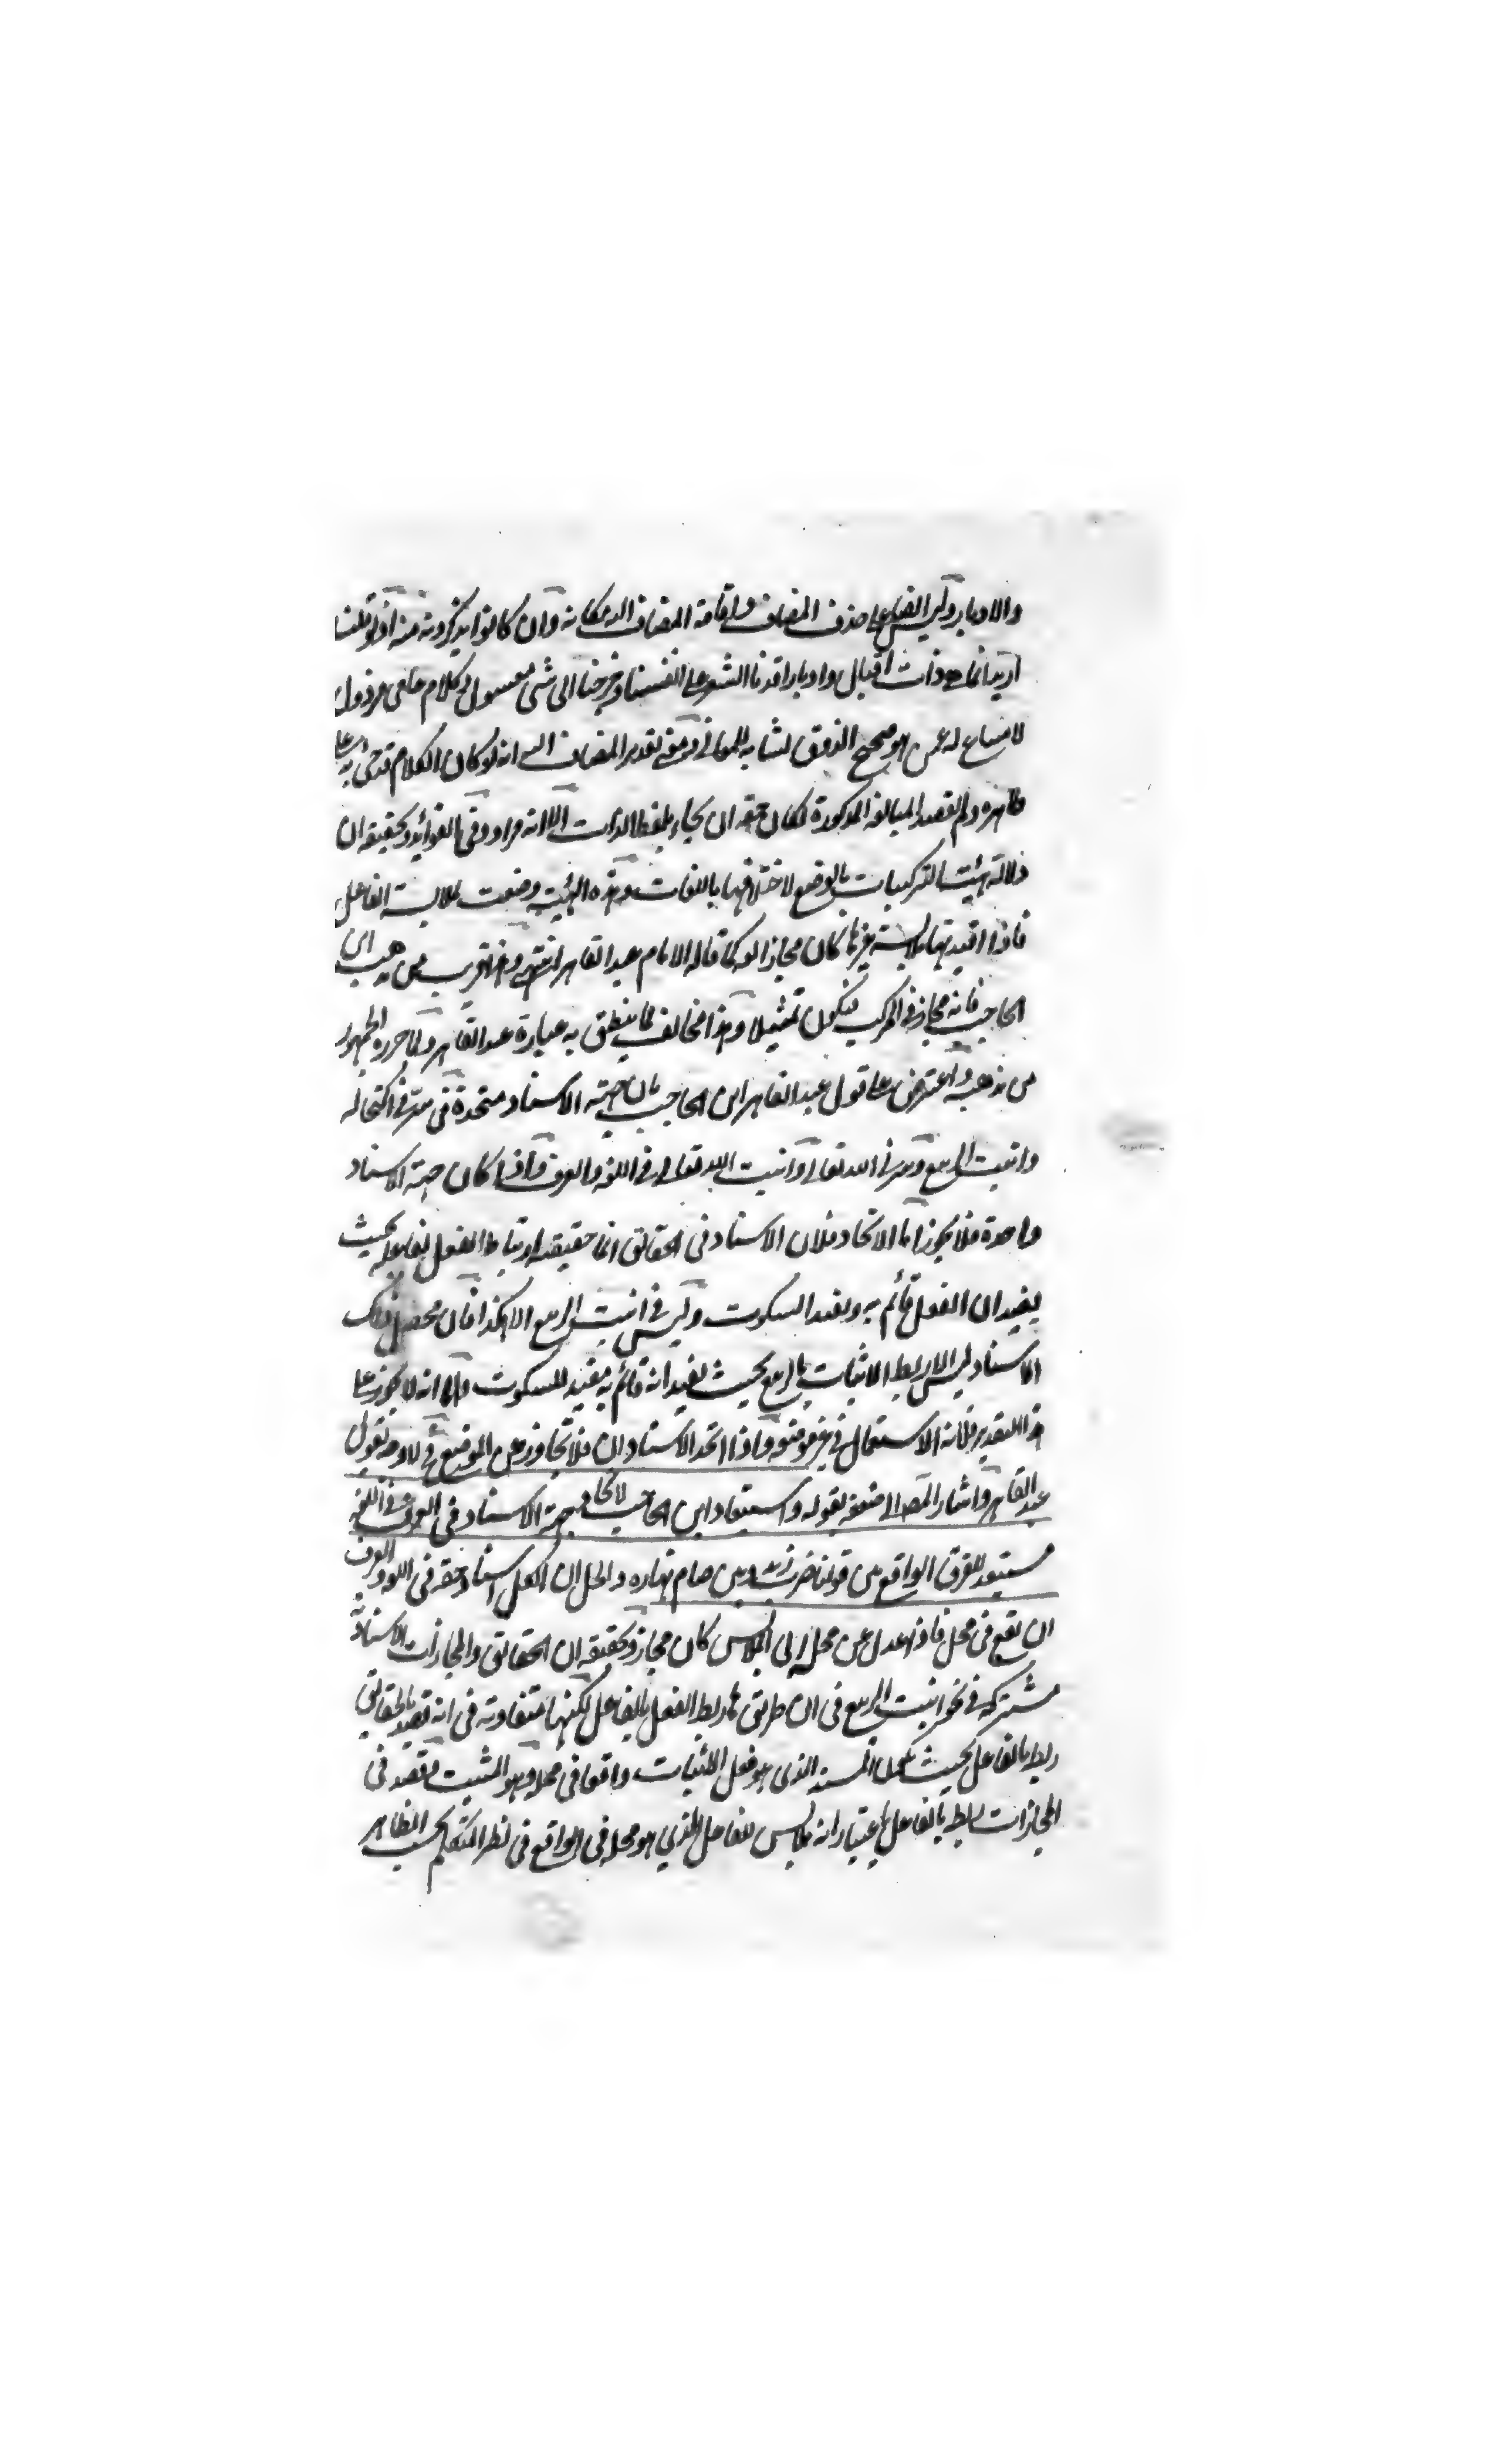 والادبار وليس ايضا على حذف المضاف واقامة المضاف اليه مكانه وان كانوا يذكرونه منه اذ لو قلنا
اريد انما هى ذات اقبال وادبار افسدنا الشعر على انفسنا وخرجنا الى شئ مغسول وكلام عامى مرذول
لا مساغ له عمن هو صحيح الذوق نسابه للمعانى ومعنى تقدير المضاف انه لو كان الكلام قد جئ به على
ظاهره ولم يقصد المبالغة المذكورة لكان حقه ان يجاء بلفظ الذات لا انه مراد وفى الفوائد وتحقيقه ان
دلالة هيئت التركيبات بالوضع لاختلافها باللغات وهذه الهيئة وضعت لملابسة الفاعل
فاذا افيد بها ملابسة غيرها كان مجازا لغويا كما قاله الامام عبد القاهر انتهى وهذا قريب من مذهب ابن
الحاجب فانه مجاز فى المركب فيكون تمثيلا وهذا مخالف لما ينطق به عبارة عبد القاهر ولما حرره الجمهور
من مذهبه واعترض على قول عبد القاهر ابن الحاجب بان جهة الاسناد متحدة فى سرنى اكتحاله
وانبت الربيع وسرنى الله تعالى وانبت الله تعالى فى اللغة والعرف واذا كان جهة الاسناد
واحدة فلا يجوز اما الاتحاد فلان الاسناد فى الحقائق انما حقيقته ارتباط الفعل بفاعله بحيث
يفيد ان الفعل قائم به ويفيد السكوت وليس فى انبت الربيع الا هكذا فان محصل ذلك
الاسناد ليس الا ربط الانبات بالربيع بحيث يفيد انه قائم به مفيد للسكوت واما انه لا يجوز على
هذا التقدير فلانه الاستعمال فى غير موضعه واذا اتحد الاسنادان فلا تجاوز عن الموضوع له فلا وجه لقول
عبد القاهر واشار المص الى ضعفه بقوله واستبعاد ابن الحاجب لاتحاد جهة الاسناد فى العرف واللغة
مستبعد للفرق الواقع بين قولنا ضرب زيد وبين صام نهاره والحل ان لكل اسناد حقه فى اللغة والعرف
ان يقع فى محل فاذا عدل عن محله الى الملابس كان مجازا وتحقيقه ان الحقائق والمجازات الاسنادية
مشتركة فى نحو انبت الربيع فى ان طريقها ربط الفعل بالفاعل لكنها متفاوتة فى انه تقصد بالحقائق
ربط بالفاعل بحيث يكون المسند الذى هو فعل الانبات واقعا فى محله وهو المثبت وتقصد فى
المجازات ربطه بالفاعل باعتبار انه ملابس للفاعل الذي هو محله فى الواقع فى نظر المتكلم بحسب الظاهر